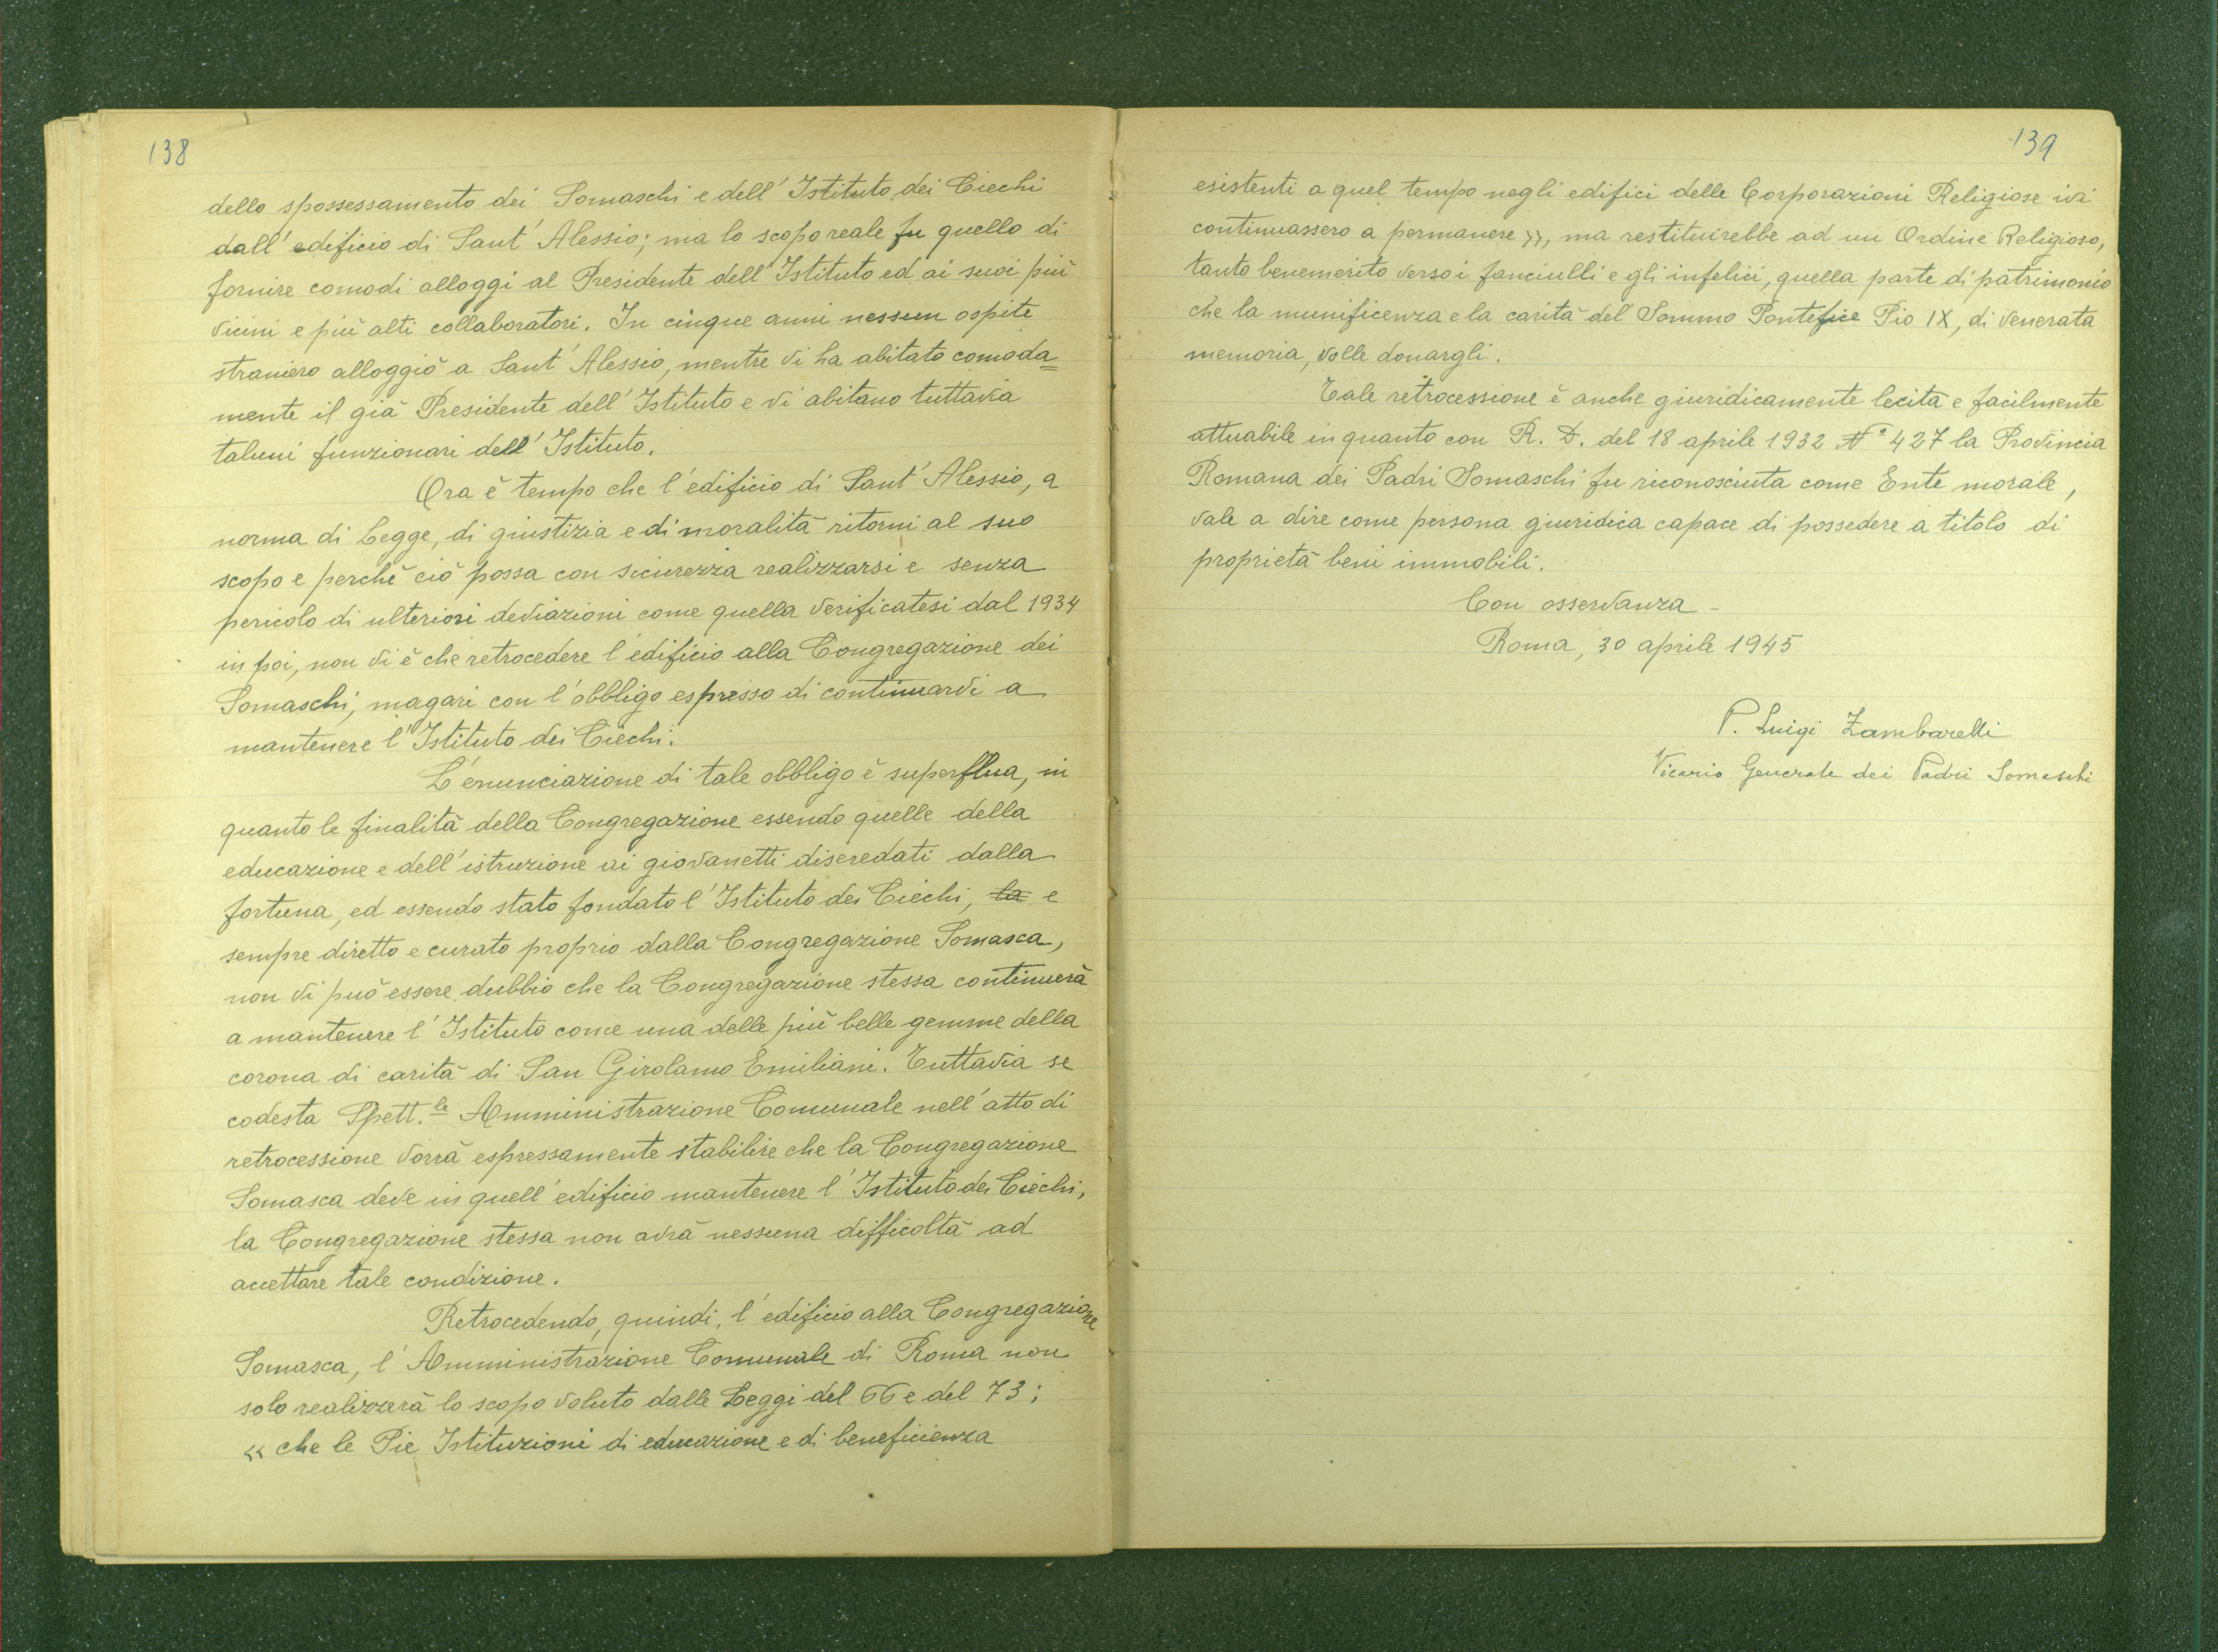 138
dello spossessamento dei Somaschi e dell'Istituto dei Ciechi
dall'edificio di Sant'Alessio; ma lo scopo reale fu quello di
fornire comodi alloggi al Presidente dell'Istituto ed ai suoi più
vicini e più alti collaboratori. In cinque anni nessun ospite
straniero alloggiò a Sant'Alessio, mentre vi ha abitato comoda=
mente il già Presidente dell'Istituto e vi abitano tuttavia
taluni funzionari dell'Istituto.
Ora è tempo che l'edificio di Sant'Alessio, a
norma di Legge, di giustizia e di moralità ritorni al suo
scopo e perchè ciò possa con sicurezza realizzarsi e senza
pericolo di ulteriori deviazioni come quella verificatesi dal 1934
in poi, non vi è che retrocedere l'edificio alla Congregazione dei
Somaschi, magari con l'obbligo espresso di continuarvi a
mantenere l'Istituto dei Ciechi.
L'enunciazione di tale obbligo è superflua, in
quanto le finalità della Congregazione essendo quelle della
educazione e dell'istruzione ai giovanetti diseredati dalla
fortuna, ed essendo stato fondato l'Istituto dei Ciechi, la e
sempre diretto e curato proprio dalla Congregazione Somasca,
non vi può essere dubbio che la Congregazione stessa continuerà
a mantenere l'Istituto come una delle più belle gemme della
corona di carità di San Girolamo Emiliani. Tuttavia se
codesta Spett.le Amministrazione Comunale nell'atto di
retrocessione vorrà espressamente stabilire che la Congregazione
Somasca deve in quell'edificio mantenere l'Istituto dei Ciechi,
la Congregazione stessa non avrà nessuna difficoltà ad
accettare tale condizione.
Retrocedendo, quindi, l'edificio alla Congregazione
Somasca, l'Amministrazione Comunale di Roma non
solo realizzerà lo scopo voluto dalle Leggi del 66 e del 73;
« che le Pie Istituzioni di educazione e di beneficienza
139
esistenti a quel tempo negli edifici delle Corporazioni Religiose ivi
continuassero a permanere », ma restituirebbe ad un Ordine Religioso,
tanto benemerito verso i fanciulli e gli infelici, quella parte di patrimonio
che la munificenza e la carità del Sommo Pontefice Pio IX, di venerata
memoria, volle donargli.
Tale retrocessione è anche giuridicamente lecita e facilmente
attuabile in quanto con R. D. del 18 aprile 1932 N° 427 la Provincia
Romana dei Padri Somaschi fu riconosciuta come Ente morale,
vale a dire come persona giuridica capace di possedere a titolo di
proprietà beni immobili.
Con osservanza -
Roma, 30 aprile 1945
P. Luigi Zambarelli
Vicario Generale dei Padri Somaschi